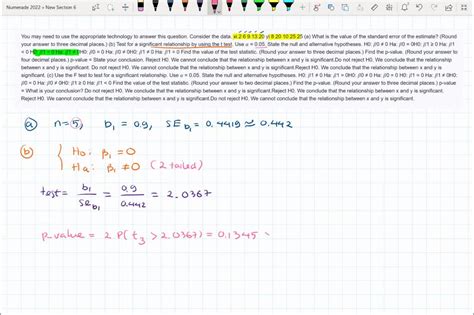 Numerade 2022 > New Section 6
You may need to use the appropriate technology to answer this question. Consider the data. xi 2 6 9 13 20 yi 8 20 10 25 25 (a) What is the value of the standard error of the estimate? (Round
your answer to three decimal places.) (b) Test for a significant relationship by using the t test. Use α = 0.05. State the null and alternative hypotheses. H0: β0 ≠ 0 Ha: β0 = 0H0: β1 ≥ 0 Ha: β1
< 0H0: β1 = 0 Ha: β1 ≠ 0H0: β0 = 0 Ha: β0 ≠ 0H0: β1 ≠ 0 Ha: β1 = 0 Find the value of the test statistic. (Round your answer to three decimal places.) Find the p-value. (Round your answer to
four decimal places.) p-value = State your conclusion. Reject H0. We cannot conclude that the relationship between x and y is significant.Do not reject H0. We conclude that the relationship
between x and y is significant. Do not reject H0. We cannot conclude that the relationship between x and y is significant.Reject H0. We conclude that the relationship between x and y is
significant. (c) Use the F test to test for a significant relationship. Use α = 0.05. State the null and alternative hypotheses.
Find the value of the test statistic. (Round your answer to two decimal places.) Find the p-value. (Round your answer to three decimal places.) p-value
= What is your conclusion? Do not reject H0. We conclude that the relationship between x and y is significant.Do not reject H0. We cannot conclude that the relationship between x and y is significant.
Reject H0. We cannot conclude that the relationship between x and y is significant.Reject H0. We conclude that the relationship between x and y is significant.
(a) n=5, b1 = 0.9, SEb1 = 0.4419 ≈ 0.442
(b) { H0: β1 = 0
Ha: β1 ≠ 0 (2 tailed)
test = b1/SEb1 = 0.9/0.442 = 2.0367
P.value = 2 P(t3 > 2.0367) = 0.1345